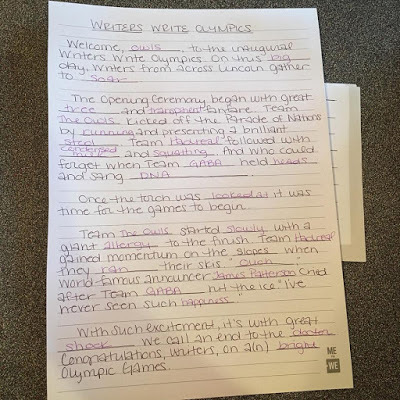 WRITERS WRITE OLYMPICS
Welcome, owls, to the inaugural
Writers Write Olympics. On this big
day, writers from across Lincoln gather
to soar.
The Opening Ceremony began with great
tree and transparent fanfare. Team
The Owls kicked off the Parade of Nations
by running and presenting a brilliant
steel. Team followed with
condensed milk and squatting. And who could
forget when Team GABA held heads
and sang DNA.
Once the torch was looked at it was
time for the games to begin.
Team The Owls started slowly with a
giant allergy to the finish. Team
gained momentum on the slopes when
they ran their skis.
World-famous announcer James Patterson cried
after Team GABA hit the ice "I've
never seen such happiness."
With such excitement, it's with great
shock we call an end to the
Congratulations, Writers, on a(n) bright
Olympic Games.
ME to WE